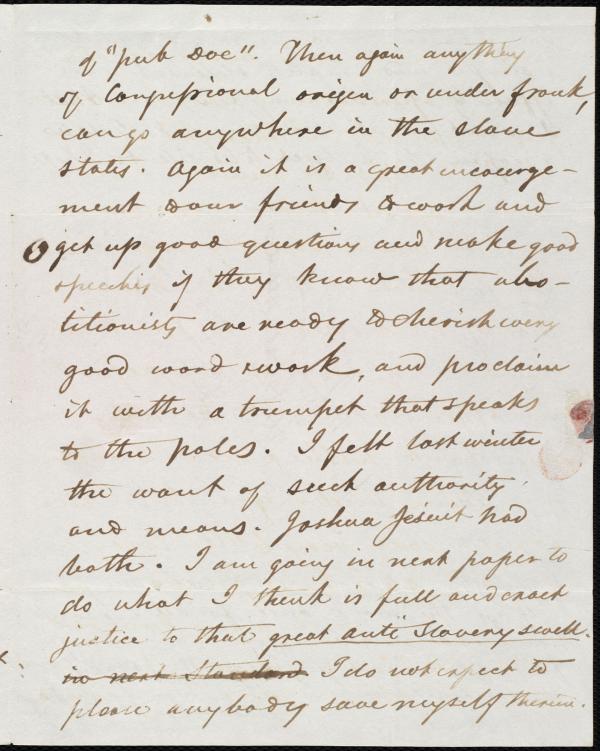 of "pub Doc". Then again anything
of Congressional origin or under frank,
can go anywhere in the slave
states. Again it is a great incourge-
ment to our friends to work and
get up good questions and make good
speeches if they know that abo-
litionists are ready to cherish every
good word & work, and proclaim
it with a trumpet that speaks
to the poles. I felt last winter
the want of such authority,
and means. Joshua Jesuit had
both. I am going in next paper to
do what I think is full and exact
justice to that great anti Slavery swell.
in next Standard I do not expect to
please anybody save myself therein.